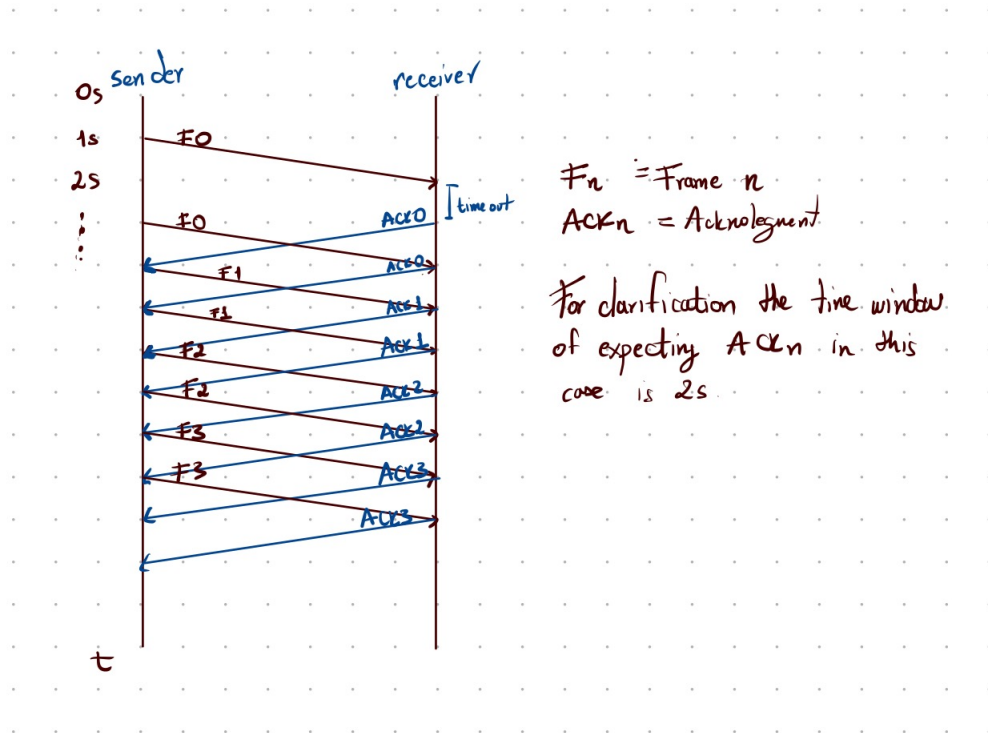 sender
receiver
0s
1s
F0
2s
timeout
F0
ACK0
ACK0
F1
ACK1
F1
ACK1
F2
ACK2
F2
ACK2
F3
ACK3
F3
ACK3
t
Fn = Frame n
ACKn = Acknolegment
For clarification the time window
of expecting ACKn in this
case is 2s